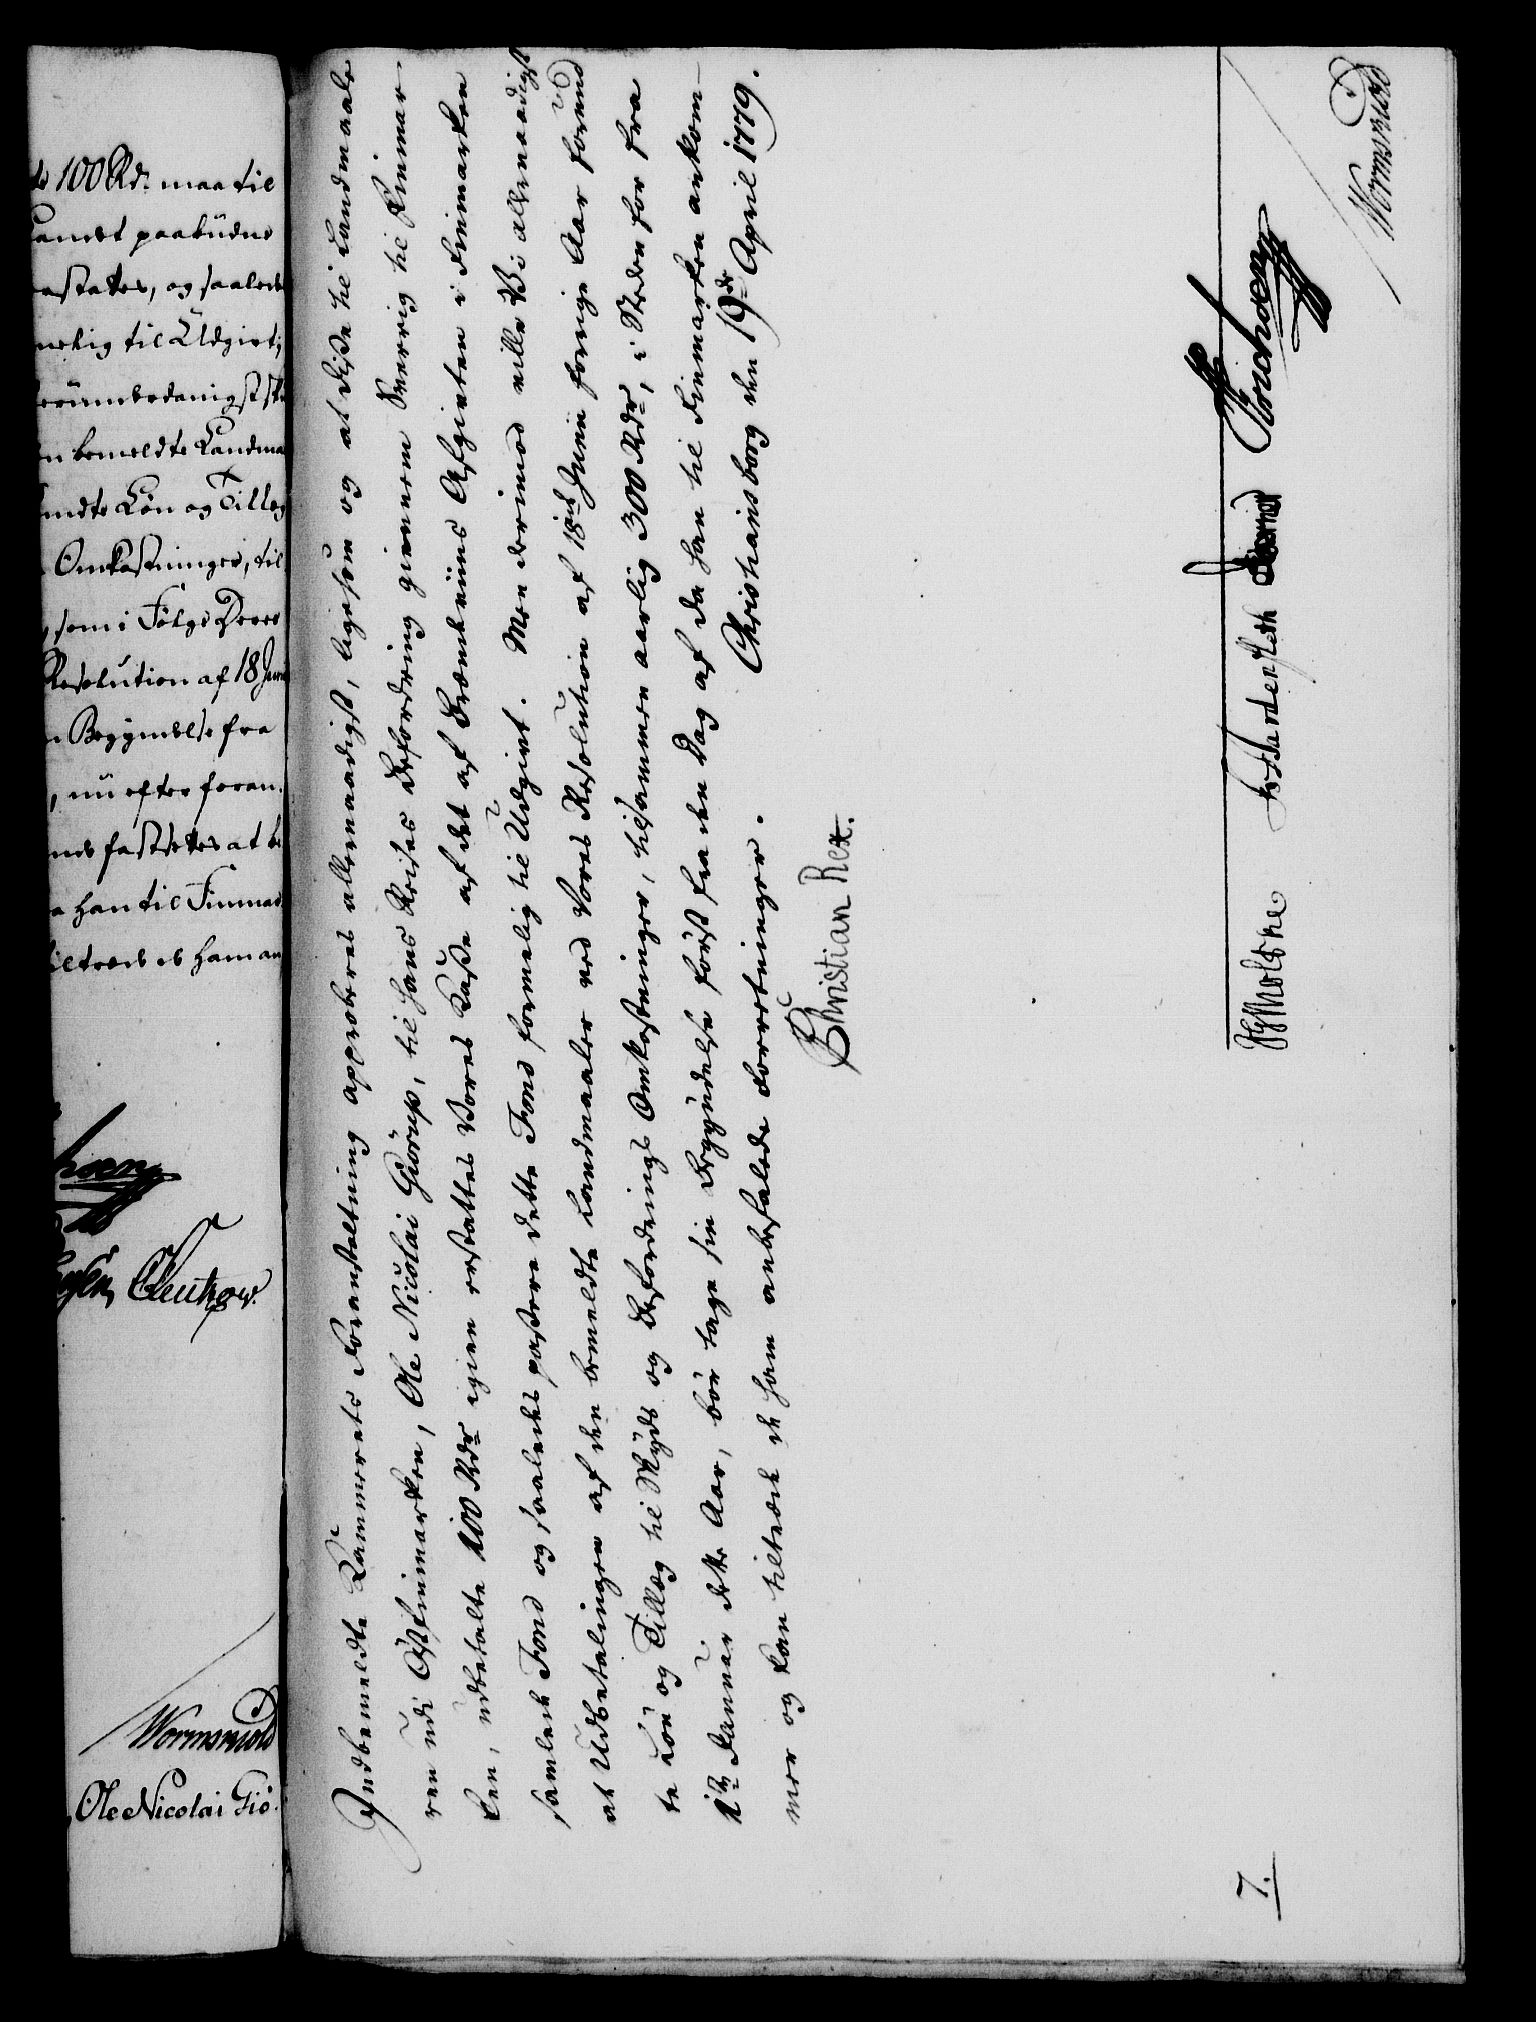 de 100 Rdr maa til
Landet paabudne
rstatter, og saaledes
melig til Udgivt,
n bemeldte Landma
undte Løn og Tillæg
Omkostninger, til
som i Følge Deres
Resolution af 18 Junii
Begyndelse fra
, nu efter foran,
mes fastsettes at be
a han til Finmar
iltræde de ham an
Wormskiold
Ole Nicolai Giö
Indbemeldte Kammerets Foranstaltning approberes allernaadigst, ligesom og at disse til Landmaale
ren udi Østfinmarken, Ole Nicolai Giörup, til hans Reises Befordring gienem Sverrig til Finmar
ken, udbetalte 100 Rdr igien erstattes Vores Kasse af det af Brændeviins Afgivten i Finmarken
samlede Fond og saaledes passere dette Fond formelig til Udgivt. Men derimod ville Vi allernaadigst
at Udbetalingen af den bemeldte Landmaaler ved Vores Resolution af 18de Junii forrige Aar forund
te Løn og Tillæg til Skyds og Befordrings Omkostninger, tilsammen aarlig 300 Rdr, i Steden for fra
1te Januar dette Aar, bör tage sin Begyndelse först fra den Dag af da han til Finmarken ankom-
mer og kan tiltræde de ham anbefalede Forretninger. Christiansborg den 19de April 1779.
Christian Rex.
7.
Wormskiold